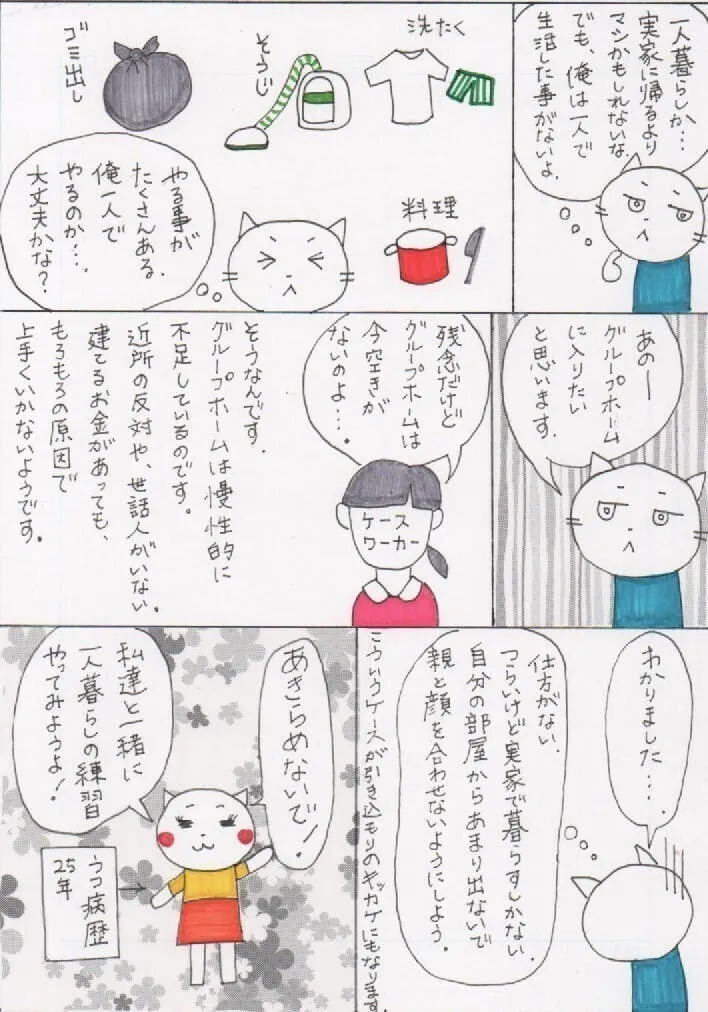 一人暮らしか…
実家に帰るより
マシかもしれないな
でも、俺は一人で
生活した事がないよ。
洗たく
そうじ
ゴミ出し
料理
やる事が
たくさんある。
俺一人で
やるのか…。
大丈夫かな?
あのー
グループホーム
に入りたい
と思います。
残念だけど
グループホームは
今空きが
ないのよ…。
ケース
ワーカー
そうなんです。
グループホームは慢性的に
不足しているのです。
近所の反対や、世話人がいない。
建てるお金があっても、
もろもろの原因で
上手くいかないようです。
わかりました…。
仕方がない。
つらいけど実家で暮らすしかない。
自分の部屋からあまり出ないで
親と顔を合わせないようにしよう。
こういうケースが引き込もりのキッカケにもなります。
あきらめないで!
私達と一緒に
一人暮らしの練習
やってみようよ!
うつ病歴
25年